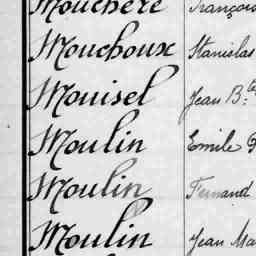 Mouchère François
Mouchoux Stanislas
Mouisel Jean Bte
Moulin Emile
Moulin Fernand
Moulin Jean Ma